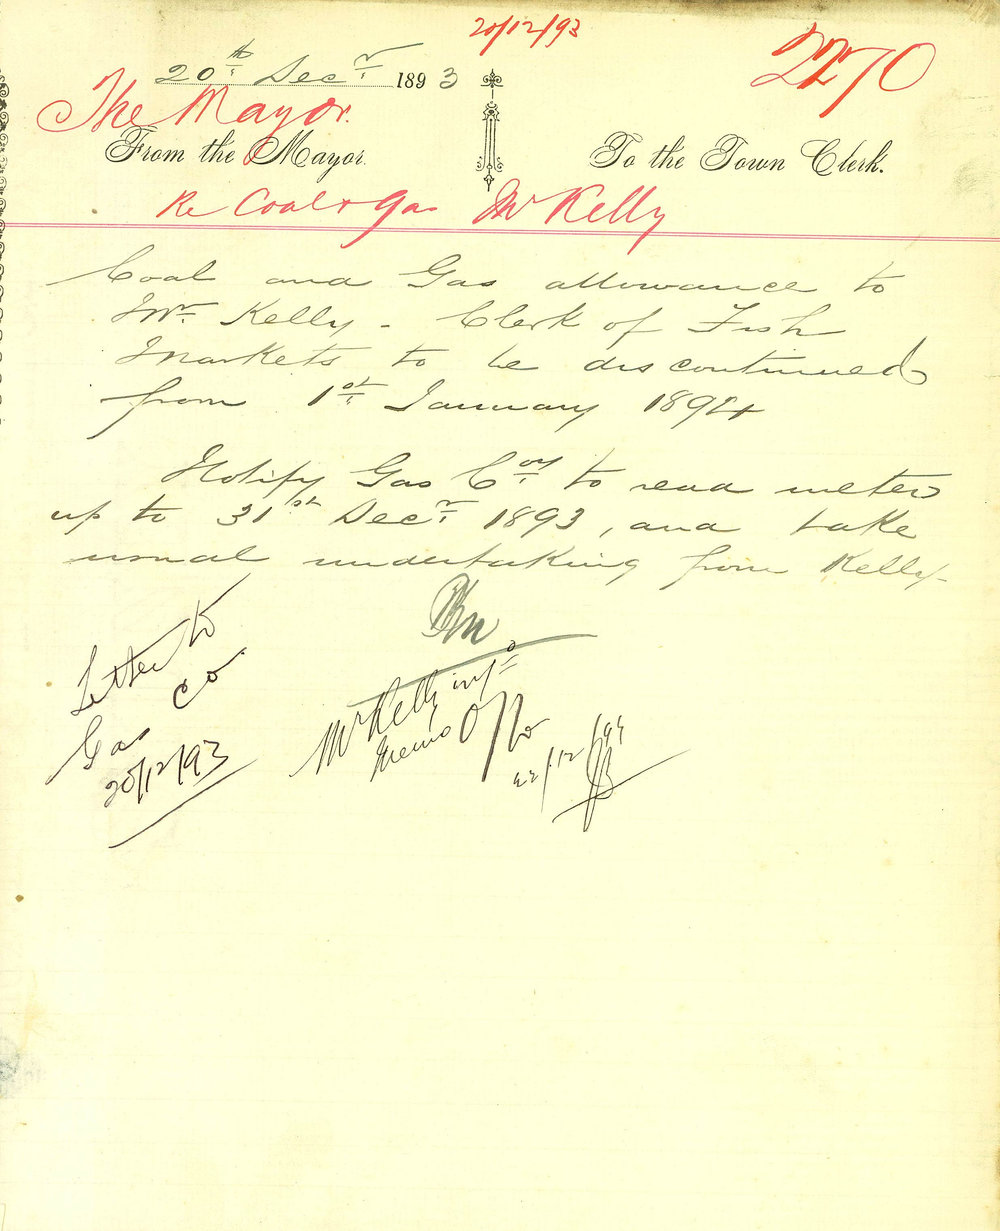 20/12/93
2270
20th Decr 1893
The Mayor.
From the Mayor. To the Town Clerk.
Re Coal & Gas Mr Kelly
Coal and Gas allowance to
Mr Kelly - Clerk of Fish
Markets to be discontinued
from 1st January 1894
Notify Gas Coy to read meter
up to 31st Decr 1893, and take
usual undertaking from Kelly -
Letter to
Gas Co.
20/12/93
Mr Kelly infd
Memo
22/12/93